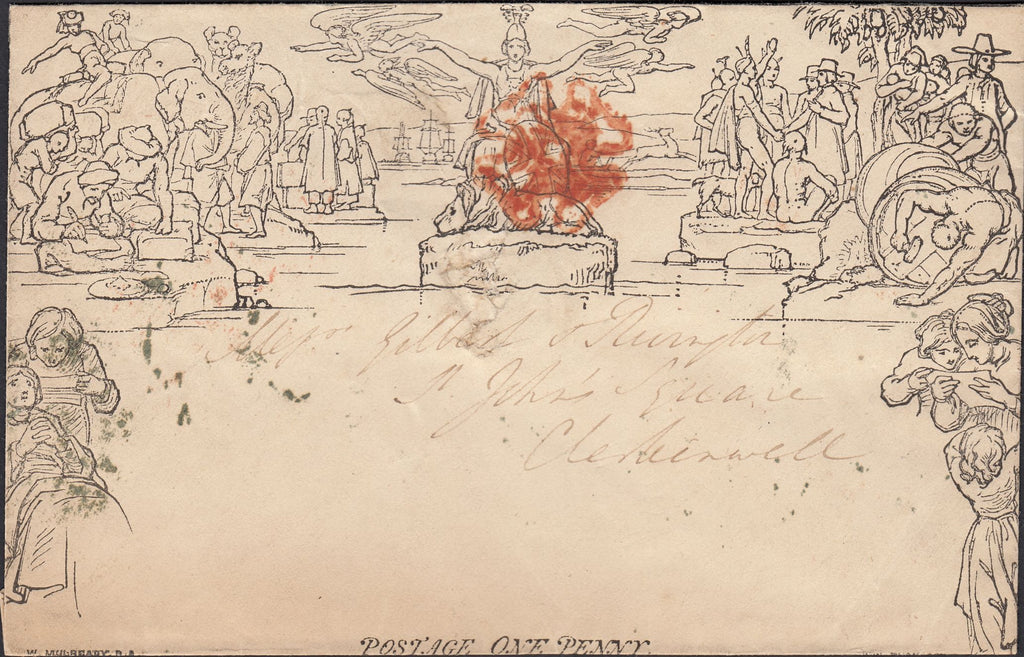 Messrs Gilbert & Rivington
St John's Square
Clerkenwell
POSTAGE ONE PENNY.
W. MULREADY, R.A.